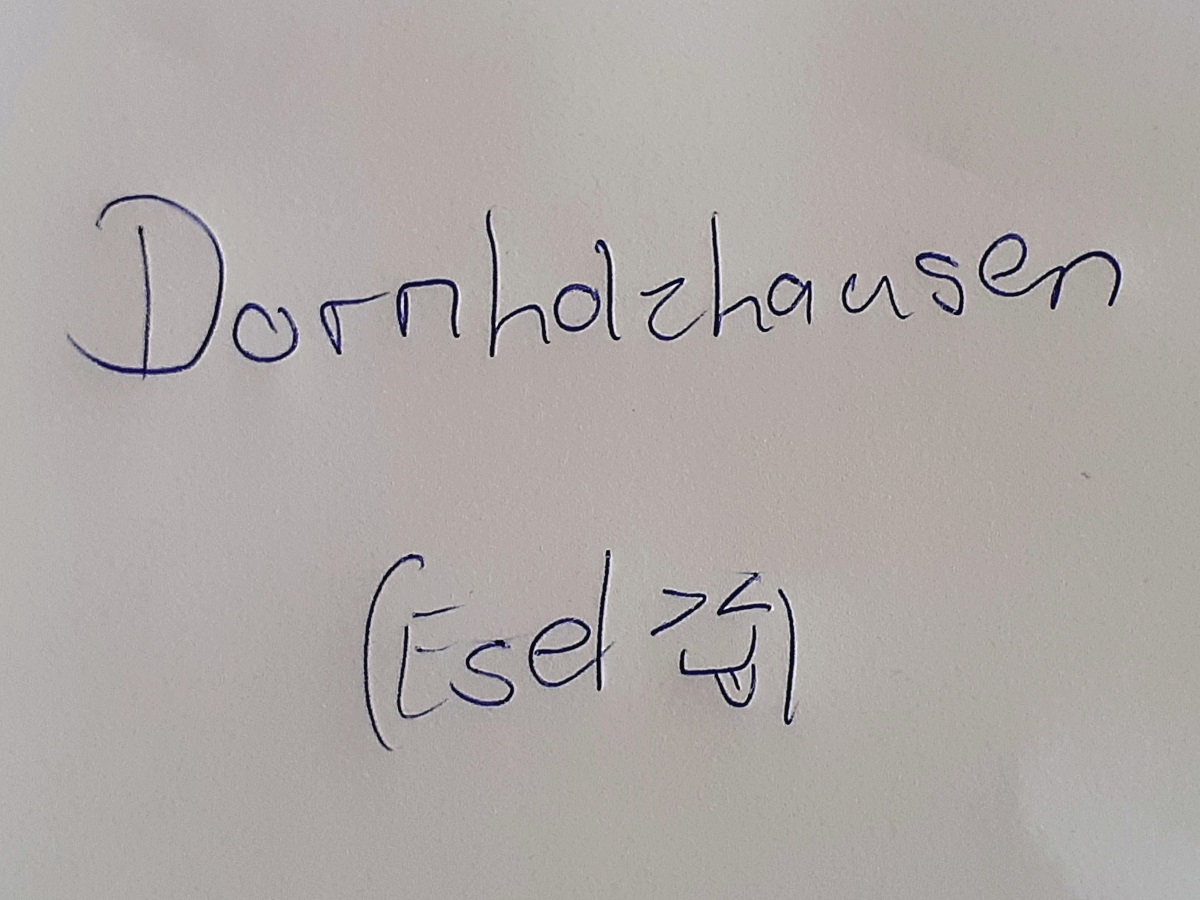 Dornholzhausen
(Esel)